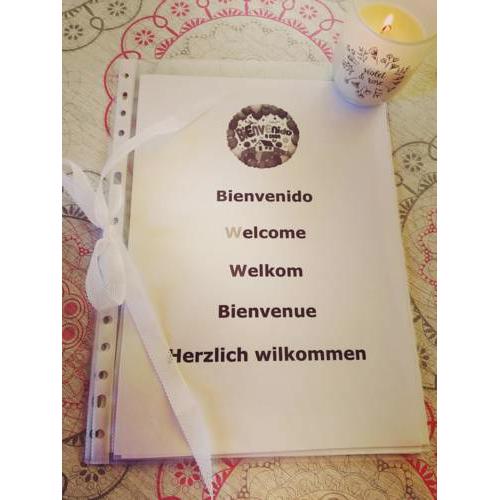 Bienvenido
Bienvenido
Welcome
Welkom
Bienvenue
Herzlich wilkommen
violet
& rose